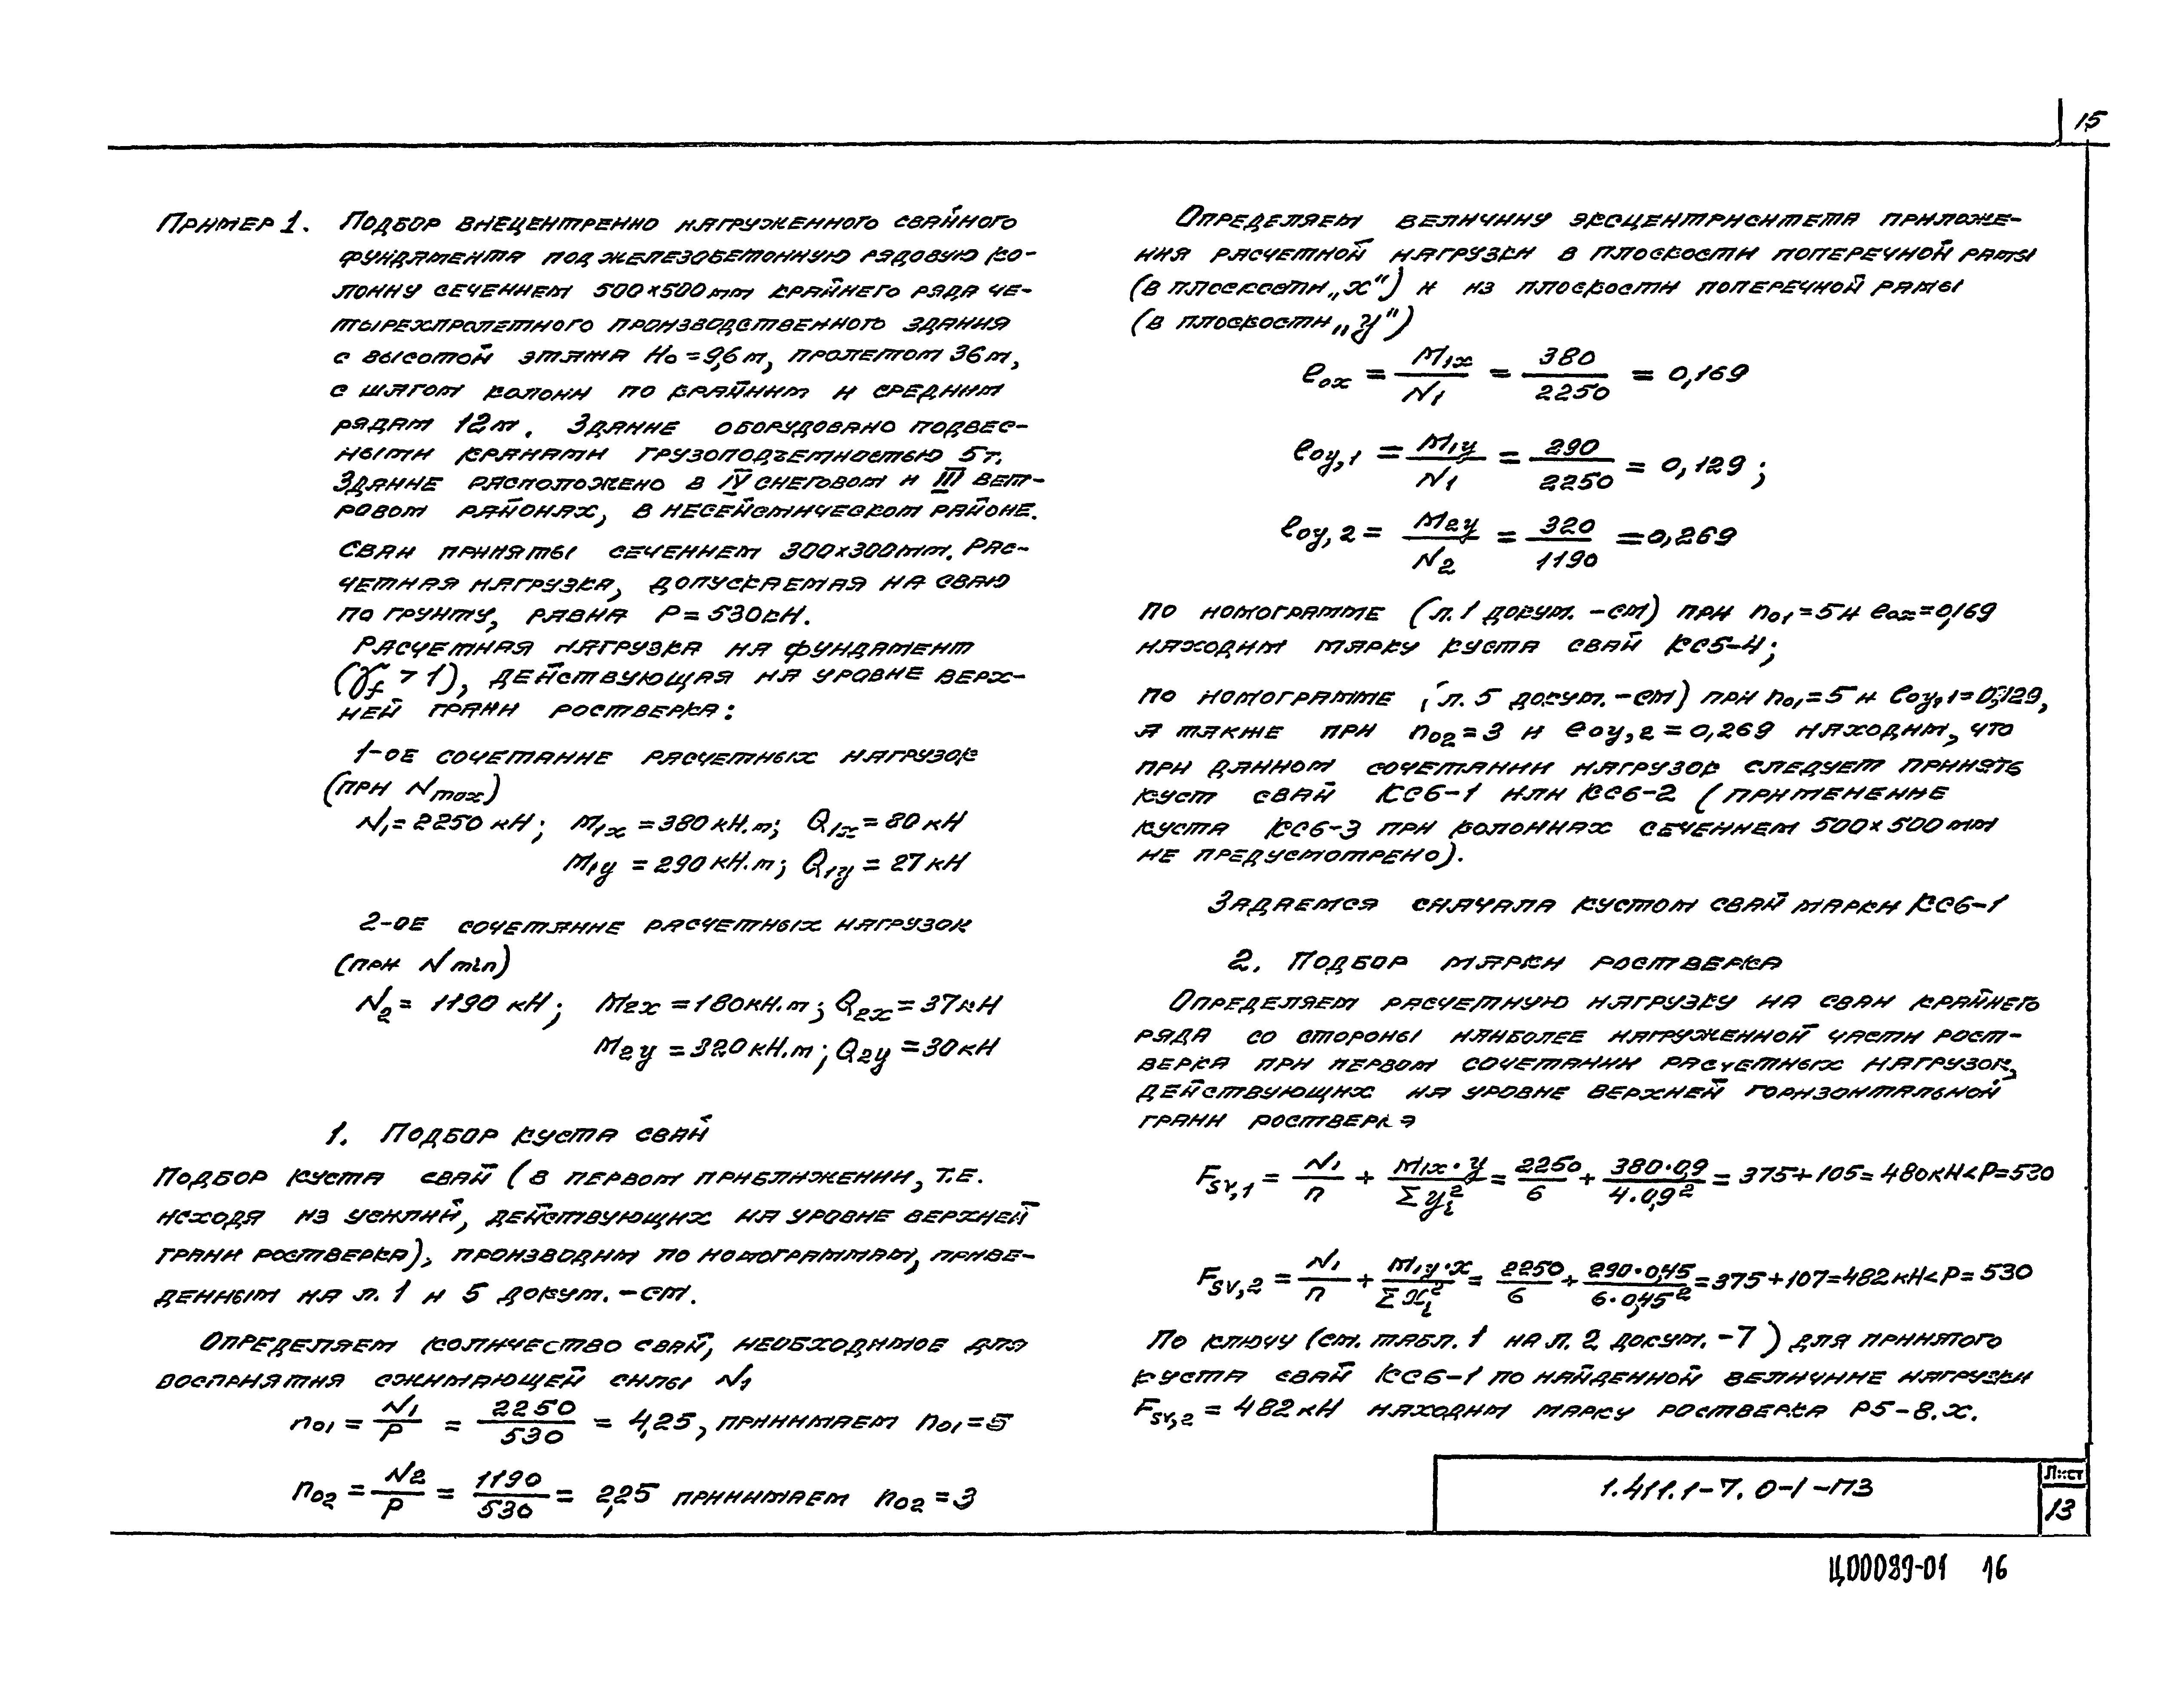 15
Пример 1. Подбор внецентренно нагруженного свайного
фундамента под железобетонную рядовую ко-
лонну сечением 500×500мм крайнего ряда че-
тырехпролетного производственного здания
с высотой этажа H₀ = 9,6 м, пролетом 36 м,
с шагом колонн по крайним и средним
рядам 12 м. Здание оборудовано подвес-
ными кранами грузоподъемностью 5 т.
Здание расположено в IV снеговом и III вет-
ровом районах, в несейсмическом районе.
Сваи приняты сечением 300×300мм. Рас-
четная нагрузка, допускаемая на сваю
по грунту, равна P = 530 кН.
Расчетная нагрузка на фундамент
(γf > 1), действующая на уровне верх-
ней грани ростверка:
1-ое сочетание расчетных нагрузок
(при Nmax)
N₁ = 2250 кН; M₁x = 380 кН.м; Q₁x = 80 кН
M₁y = 290 кН.м; Q₁y = 27 кН
2-ое сочетание расчетных нагрузок
(при Nmin)
N₂ = 1190 кН; M₂x = 180 кН.м; Q₂x = 37 кН
M₂y = 320 кН.м; Q₂y = 30 кН
1. Подбор куста свай
Подбор куста свай (в первом приближении, т.е.
исходя из усилий, действующих на уровне верхней
грани ростверка), производим по номограммам, приве-
денным на л. 1 и 5 докум. -см.
Определяем количество свай, необходимое для
восприятия сжимающей силы N₁
n₀₁ = N₁/P = 2250/530 = 4,25, принимаем n₀₁ = 5
n₀₂ = N₂/P = 1190/530 = 2,25 принимаем n₀₂ = 3
Определяем величину эксцентриситета приложе-
ния расчетной нагрузки в плоскости поперечной рамы
(в плоскости „x“) и из плоскости поперечной рамы
(в плоскости „y“)
e₀x = M₁x/N₁ = 380/2250 = 0,169
e₀y,1 = M₁y/N₁ = 290/2250 = 0,129;
e₀y,2 = M₂y/N₂ = 320/1190 = 0,269
по номограмме (л. 1 докум. -см) при n₀₁ = 5 и e₀x = 0,169
находим марку куста свай КС5-4;
по номограмме (л. 5 докум. -см) при n₀₁ = 5 и e₀y,1 = 0,129,
а также при n₀₂ = 3 и e₀y,2 = 0,269 находим, что
при данном сочетании нагрузок следует принять
куст свай КС6-1 или КС6-2 (применение
куста КС6-3 при колоннах сечением 500×500мм
не предусмотрено).
Задаемся сначала кустом свай марки КС6-1
2. Подбор марки ростверка
Определяем расчетную нагрузку на сваи крайнего
ряда со стороны наиболее нагруженной части рост-
верка при первом сочетании расчетных нагрузок,
действующих на уровне верхней горизонтальной
грани ростверка
Fsv,1 = N₁/n + M₁x·y/Σyi² = 2250/6 + 380·0,9/4·0,9² = 375 + 105 = 480 кН < P = 530
Fsv,2 = N₁/n + M₁y·x/Σxi² = 2250/6 + 290·0,45/6·0,45² = 375 + 107 = 482 кН < P = 530
По ключу (см. табл. 1 на л. 2 докум. -7) для принятого
куста свай КС6-1 по найденной величине нагрузки
Fsv,2 = 482 кН находим марку ростверка Р5-8.х.
1.411.1-7.0-1-ПЗ
Лист
13
Ц00089-01 16